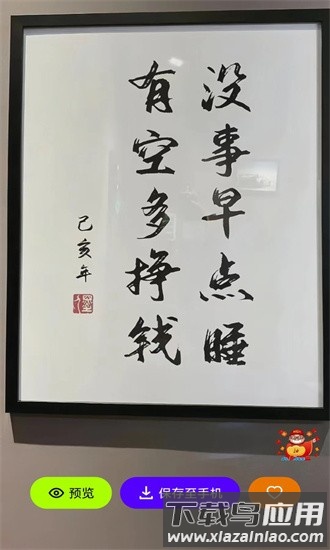 没事早点睡
有空多挣钱
己亥年
预览
保存至手机
下载鸟应用
www.xiazainiao.com